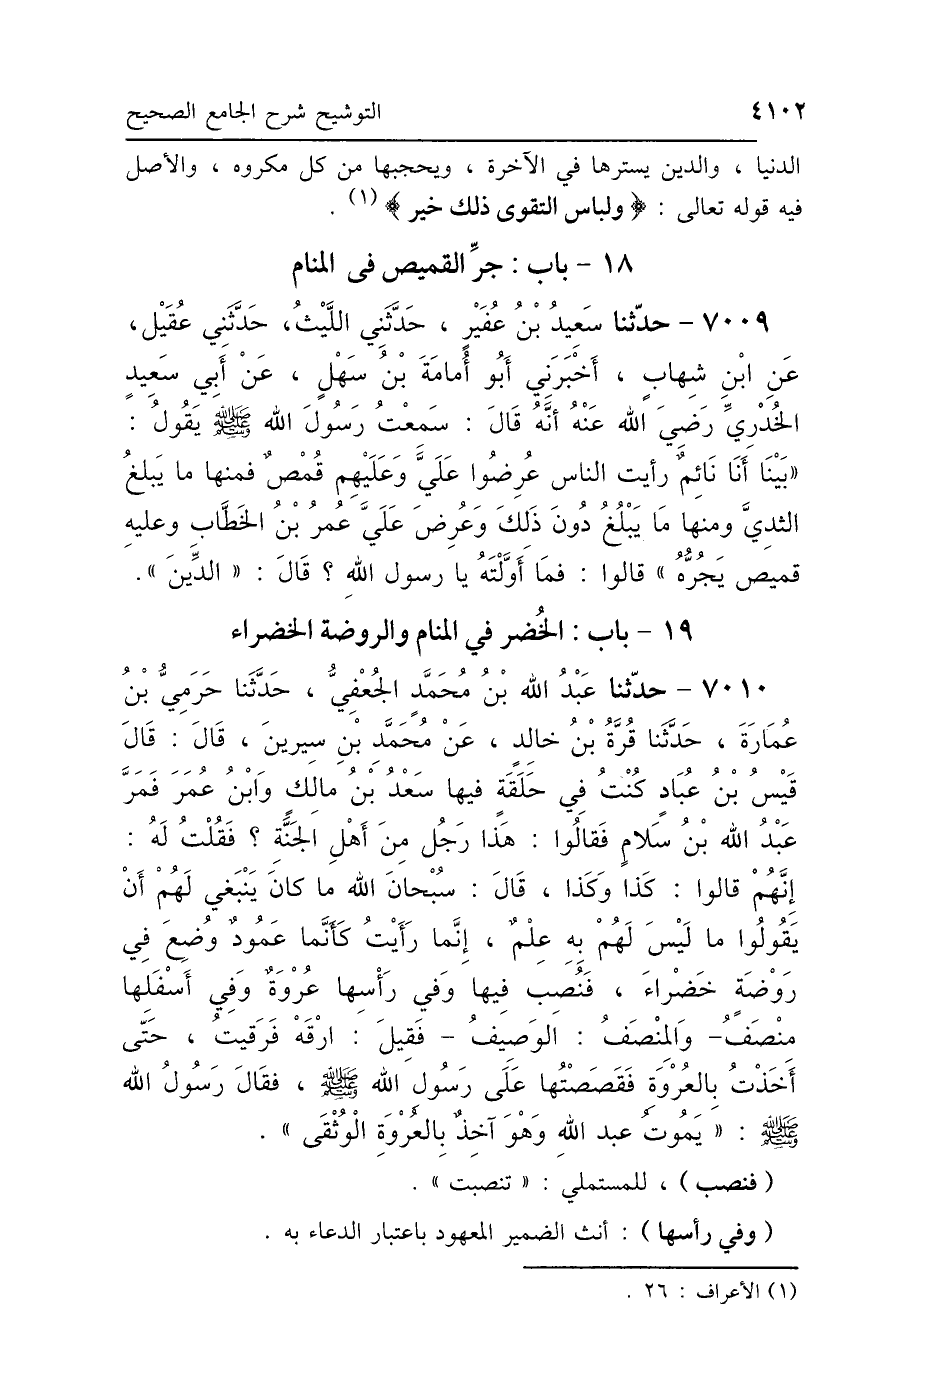 ٤١٠٢ التوشيح شرح الجامع الصحيح
الدنيا ، والدين يسترها في الآخرة ، ويحجبها من كل مكروه ، والأصل
فيه قوله تعالى : ﴿ ولباس التقوى ذلك خير ﴾ (١) .
١٨ - باب : جرِّ القميص فى المنام
٧٠٠٩ - حدّثنا سَعِيدُ بْنُ عُفَيْرٍ ، حَدَّثَنِي اللَّيْثُ، حَدَّثَنِي عُقَيْل،
عَنِ ابْنِ شهابٍ ، أَخْبَرَنِي أَبُو أُمامَةَ بْنُ سَهْلٍ ، عَنْ أَبِي سَعِيدٍ
الخُدْرِيِّ رَضِيَ الله عَنْهُ أنَّهُ قَالَ : سَمعتُ رَسُولَ الله ﷺ يَقُولُ :
«بَيْنَا أَنَا نَائِمٌ رأيت الناس عُرِضُوا عَلَيَّ وَعَلَيْهِم قُمْصٌ فمنها ما يَبلغُ
الثديَّ ومنها مَا يَبْلُغُ دُونَ ذَلكَ وَعُرِضَ عَلَيَّ عمرُ بْنُ الخَطَّابِ وعليهِ
قميص يَجُرُّهُ » قالوا : فمَا أَوَّلْتَهُ يا رسول اللهِ ؟ قَالَ : « الدِّينَ ».
١٩ - باب : الخُضر في المنام والروضة الخضراء
٧٠١٠ - حدّثنا عَبْدُ الله بْنُ مُحَمَّدٍ الجُعْفِيُّ ، حَدَّثَنا حَرَمِيُّ بْنُ
عُمَارَةَ ، حَدَّثَنا قُرَّةُ بْنُ خالدٍ ، عَنْ مُحَمَّدِ بْنِ سيرينَ ، قَالَ : قَالَ
قَيْسُ بْنُ عُبَادٍ كُنْتُ فِي حَلَقَةٍ فيها سَعْدُ بْنُ مالكٍ وَابْنُ عُمَرَ فَمَرَّ
عَبْدُ الله بْنُ سَلَامٍ فَقالُوا : هَذَا رَجُل مِنَ أَهْلِ الجَنَّةِ ؟ فَقُلْتُ لَهُ :
إِنَّهُمْ قالوا : كَذَا وَكَذا ، قَالَ : سُبْحانَ الله ما كانَ يَنْبَغي لَهُمْ أَنْ
يَقُولُوا ما لَيْسَ لَهُمْ بِهِ عِلمٌ ، إنَّما رَأَيْتُ كَأَنَّما عَمُودٌ وُضِعَ فِي
رَوْضَةٍ خَضْراءَ ، فَنُصب فيها وَفي رَأْسها عُرْوَةٌ وَفي أَسْفَلها
منْصَفُ- وَالمْنْصَفُ : الوَصيفُ - فَقيلَ : ارْقَهْ فَرَقيتُ ، حَتَّى
أَخَذْتُ بالعُرْوَةِ فَقَصَصْتُها عَلَى رَسُولِ الله ﷺ ، فقَالَ رَسُولُ الله
ﷺ : « يَمُوتُ عبد الله وَهْوَ آخذٌ بالعُرْوَةِ الْوُثْقَى » .
( فنصب ) ، للمستملي : « تنصبت » .
( وفي رأسها ) : أنث الضمير المعهود باعتبار الدعاء به .
(١) الأعراف : ٢٦ .